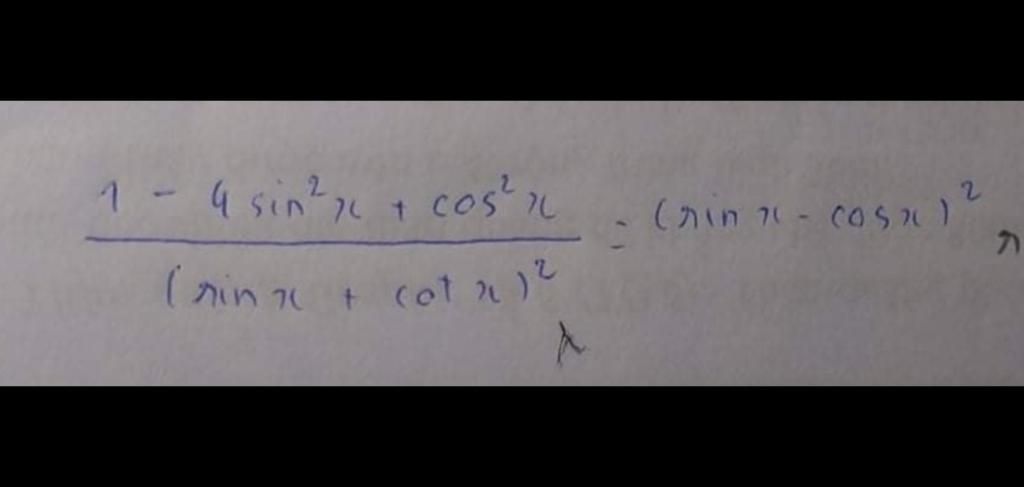 1 - 4 sin²x + cos²x
(sin x + cot x)²
= (sin x - cosx)²